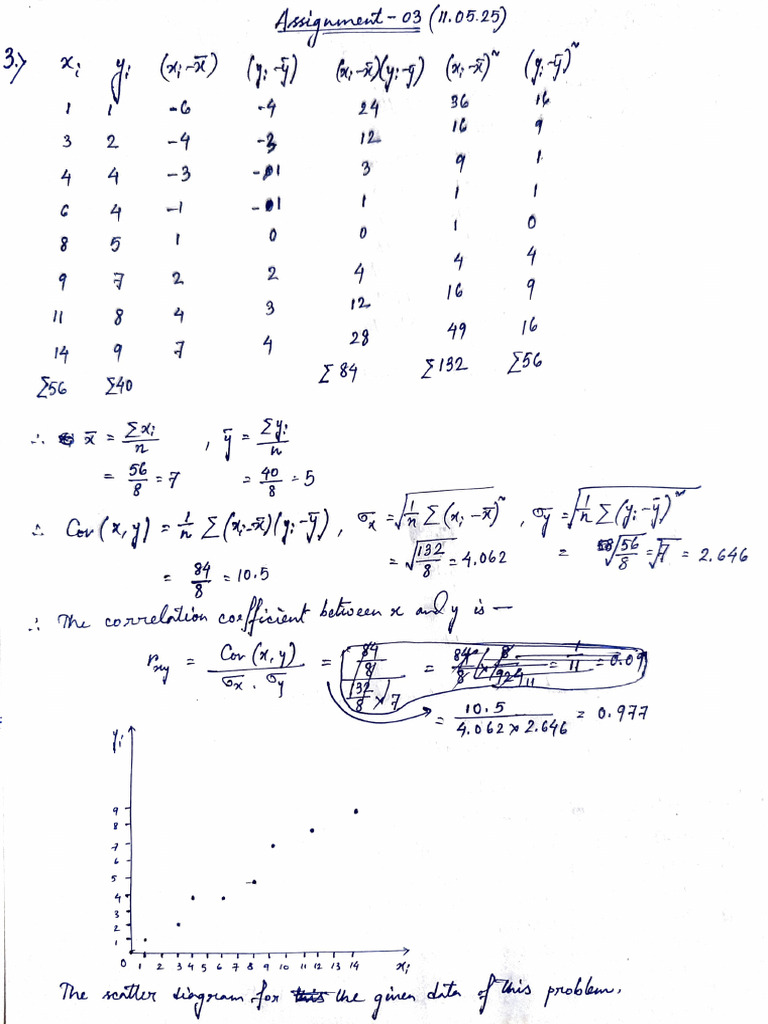 Assignment - 03 (11.05.25)
3.) xi yi (xi-x̄) (yi-ȳ) (xi-x̄)(yi-ȳ) (xi-x̄)~ (yi-ȳ)~
1 1 -6 -4 24 36 16
3 2 -4 -3 12 16 9
4 4 -3 -1 3 9 1
6 4 -1 -1 1 1 1
8 5 1 0 0 1 0
9 7 2 2 4 4 4
11 8 4 3 12 16 9
14 9 7 4 28 49 16
Σ56 Σ40 Σ84 Σ132 Σ56
∴ x̄ = Σxi/n , ȳ = Σyi/n
= 56/8 = 7 = 40/8 = 5
∴ Cov(x,y) = 1/n Σ(xi-x̄)(yi-ȳ), σx = √(1/n Σ(xi-x̄)~), σy = √(1/n Σ(yi-ȳ)~)
= 84/8 = 10.5 = √(132/8) = 4.062 = √(56/8) = √7 = 2.646
∴ The correlation coefficient between x and y is —
rxy = Cov(x,y)/(σx . σy) = (84/8)/((132/8) × 7) = 84/8 × 8/924 11 = 1/11 = 0.09
= 10.5/(4.062 × 2.646) = 0.977
yi
9
8
7
6
5
4
3
2
1
0 1 2 3 4 5 6 7 8 9 10 11 12 13 14 xi
The scatter diagram for this the given data of this problem.